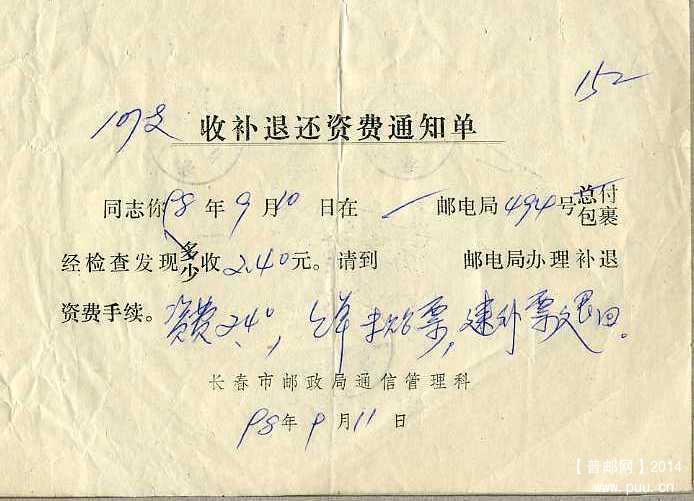 152
107支 收补退还资费通知单
同志你98年9月10日在 邮电局494号总付包裹
经检查发现多少收2.40元。请到 邮电局办理补退
资费手续。资费2.40, 未贴票, 速补票 退回。
长春市邮政局通信管理科
98年9月11日
【普邮网】2014
www.puu.cn